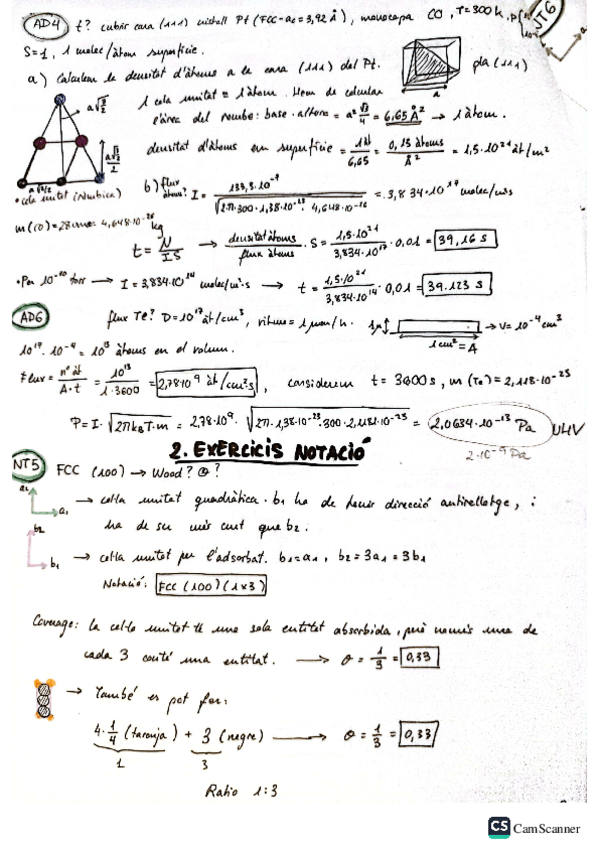 AD4 t? cubrir cara (111) cristall Pt (FCC-a₀=3,92 Å), monocapa CO, T=300K, P
NT6
S=1, 1 molec/àtom superfície.
a) Calculem la densitat d'àtoms a la cara (111) del Pt.
pla (111)
a
a√2/2
1 cela unitat = 1 àtom. Hem de calcular
l'àrea del rombe: base·altura = a² √3/4 = 6,65 Å² → 1 àtom.
a√3/2
a√2/2
densitat d'àtoms en superfície = 1 àt/6,65 = 0,15 àtoms/Å² = 1,5·10²¹ àt/m²
• cela unitat (Rúmbica)
b) flux àtoms? I = 133,3·10⁻⁷/√(2π·300·1,38·10⁻²³·4,648·10⁻²⁶) = 3,834·10¹⁷ molec/m²s
m(CO)=28uma=4,648·10⁻²⁶ kg
t = N/IS → densitat àtoms/flux àtoms · S = 1,5·10²¹/3,834·10¹⁷ · 0,01 = 39,16 s
• Per 10⁻¹⁰ torr → I = 3,834·10¹⁴ molec/m²·s → t = 1,5·10²¹/3,834·10¹⁴ · 0,01 = 39.123 s
AD6 flux Te? D=10¹⁷ àt/cm³, ritme=1 μm/h. 1μ → V=10⁻⁴ cm³
1 cm² = A
10¹⁷·10⁻⁴ = 10¹³ àtoms en el volum.
Flux = nº àt/A·t = 10¹³/1·3600 = 2,78·10⁹ àt/cm²s, considerem t=3600s, m(Te)=2,118·10⁻²⁵
P=I·√(2πk_BT·m) = 2,78·10⁹·√(2π·1,38·10⁻²³·300·2,118·10⁻²⁵) = 2,0634·10⁻¹³ Pa UHV
2·10⁻⁹ Pa
2. EXERCICIS NOTACIÓ
NT5 FCC (100) → Wood? θ?
a₂
a₁
→ cel·la unitat quadràtica. b₁ ha de tenir direcció antirellotge, i
ha de ser més curt que b₂.
b₂
b₁
→ cel·la unitat per l'adsorbat. b₁=a₁, b₂=3a₁=3b₁
Notació: FCC (100)(1×3)
Coverage: la cel·la unitat té una sola entitat absorbida, però només una de
cada 3 conté una entitat. → θ = 1/3 = 0,33
→ També es pot fer:
4·1/4 (taronja) + 3 (negre) → θ = 1/3 = 0,33
1 3
Ratio 1:3
CS CamScanner